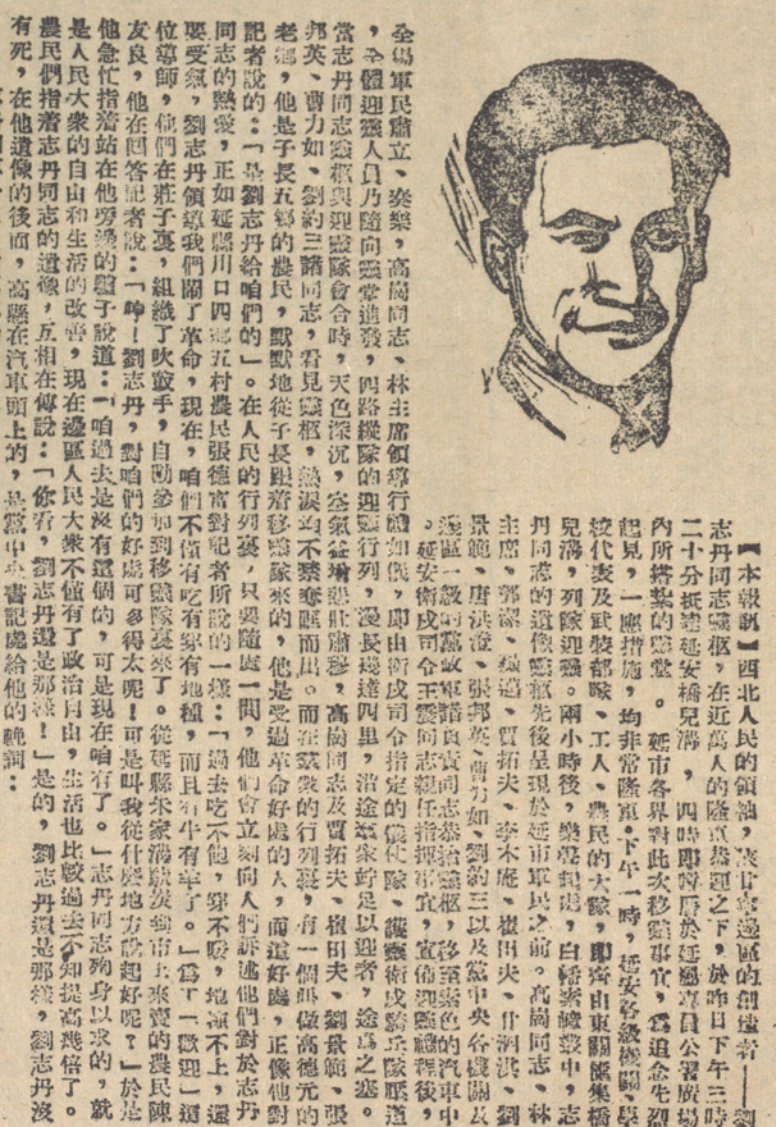 【本報訊】西北人民的領袖，陝甘寧邊區的創造者——劉
志丹同志靈柩，在近萬人的隆重恭迎之下，於昨日下午三時
二十分抵達延安橋兒溝，四時即暫厝於延屬專員公署廣場
內所搭紮的靈堂。延市各界對此次移靈事宜，為追念先烈
起見，一應措施，均非常隆重。下午一時，延安各級機關、學
校代表及武裝部隊、工人、農民的大隊，即齊由東關麕集橋
兒溝，列隊迎靈。兩小時後，樂聲起處，白幡素幛叢中，志
丹同志的遺像靈柩先後呈現於延市軍民之前。高崗同志、林
主席、賈拓夫、李木庵、崔田夫、劉
景範、唐洪澄、張邦英、曹力如、劉約三以及黨中央各機關及
邊區一級的黨政軍諸負責同志恭抬靈柩，移至素色的汽車中
。延安衛戍司令王震同志親任指揮事宜，宣佈迎靈禮程後，
全場軍民肅立、奏樂，高崗同志、林主席領導行禮如儀，即由衛戍司令指定的儀仗隊、護靈衛戍騎兵隊壓道
，全體迎靈人員乃隨向靈堂進發，四路縱隊的迎靈行列，漫長幾達四里，沿途羣眾竚足以迎者，途為之塞。
當志丹同志靈柩與迎靈隊會合時，天色深沉，空氣益增悲壯肅穆，高崗同志及賈拓夫、崔田夫、劉景範、張
邦英、曹力如、劉約三諸同志，看見靈柩，熱淚均不禁奪眶而出。而在羣眾的行列裏，有一個叫做高德元的
老鄉，他是子長五鄉的農民，默默地從子長跟着移靈隊來的，他是受過革命好處的人，而這好處，正像他對
記者說的：「是劉志丹給咱們的」。在人民的行列裏，只要隨處一問，他們會立刻向人們訴述他們對於志丹
同志的熱愛，正如延縣川口四鄉五村農民張德富對記者所說的一樣：「過去吃不飽，穿不暖，地種不上，還
要受氣，劉志丹領導我們鬧了革命，現在，咱們不僅有吃有穿有地種，而且有牛有羊了。」為了「歡迎」這
位導師，他們在莊子裏，組織了吹鼓手，自動參加到移靈隊裏來了。從延縣朱家溝馱炭到市上來賣的農民陳
友良，他在回答記者說：「呻！劉志丹，對咱們的好處可多得太呢！可是叫我從什麼地方說起好呢？」於是
他急忙指着站在他旁邊的驢子說道：「咱過去是沒有這個的，可是現在咱有了。」志丹同志殉身以求的，就
是人民大衆的自由和生活的改善，現在邊區人民大衆不僅有了政治自由，生活也比較過去不知提高幾倍了。
農民們指着志丹同志的遺像，互相在傳說：「你看，劉志丹還是那樣！」是的，劉志丹還是那樣，劉志丹沒
有死，在他遺像的後面，高懸在汽車頭上的，是黨中央書記處給他的輓詞：